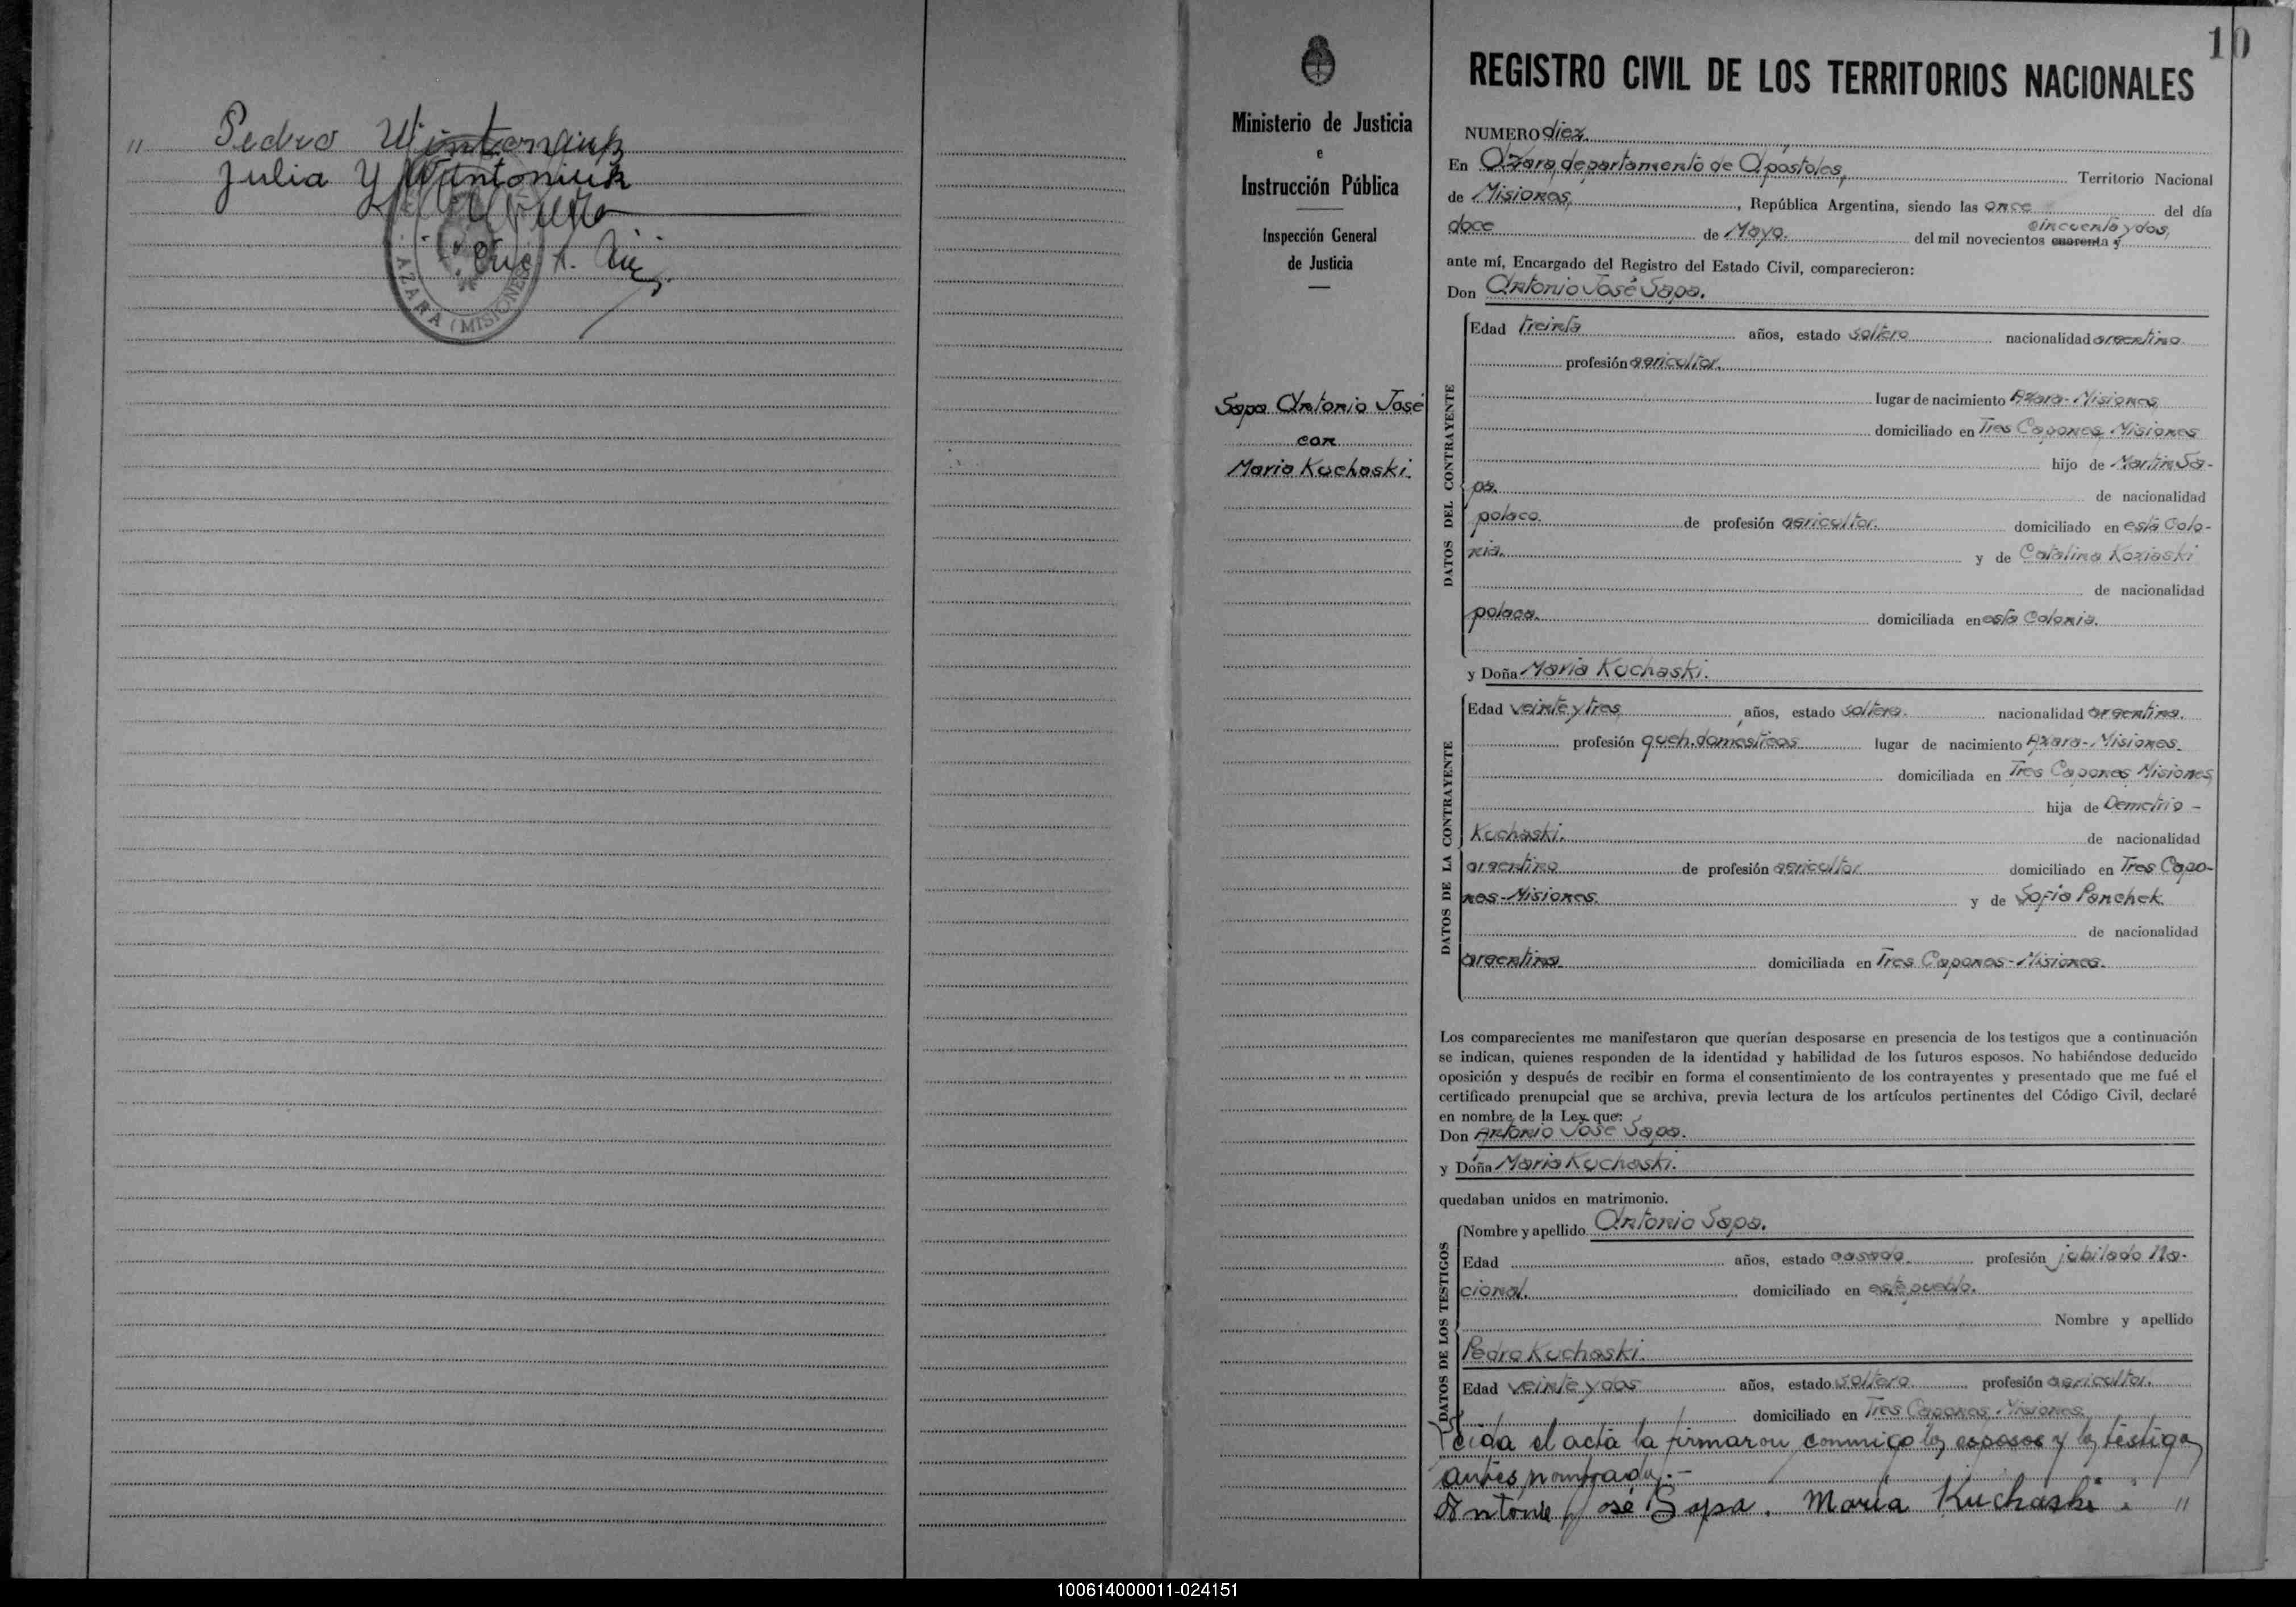 " Pedro Wintoniuk
Julia Y Wintoniuk
AZARA (MISIONES)
10
Ministerio de Justicia
e
Instrucción Pública
Inspección General
de Justicia
Sapa Antonio José
con
Maria Kuchaski.
REGISTRO CIVIL DE LOS TERRITORIOS NACIONALES
NUMERO diez.
En Azara, departamento de Apóstoles, Territorio Nacional
de Misiones, , República Argentina, siendo las once del día
doce de Mayo. del mil novecientos cuarenta y cincuenta y dos,
ante mí, Encargado del Registro del Estado Civil, comparecieron:
Don Antonio José Sapa.
DATOS DEL CONTRAYENTE
Edad treinta años, estado soltero nacionalidad argentina.
profesión agricultor.
lugar de nacimiento Azara-Misiones
domiciliado en Tres Capones Misiones
hijo de Martin Sa-
pa. de nacionalidad
polaco. de profesión agricultor. domiciliado en esta Colo-
nia. y de Catalina Koziaski
de nacionalidad
polaca. domiciliada en esta Colonia.
y Doña Maria Kuchaski.
DATOS DE LA CONTRAYENTE
Edad veinte y tres años, estado soltera. nacionalidad argentina.
profesión queh. domesticos lugar de nacimiento Azara-Misiones.
domiciliada en Tres Capones Misiones
hija de Demetrio -
Kuchaski. de nacionalidad
argentino de profesión agricultor domiciliado en Tres Capo-
nes-Misiones. y de Sofia Panchek
de nacionalidad
argentina. domiciliada en Tres Capones-Misiones.
Los comparecientes me manifestaron que querían desposarse en presencia de los testigos que a continuación
se indican, quienes responden de la identidad y habilidad de los futuros esposos. No habiéndose deducido
oposición y después de recibir en forma el consentimiento de los contrayentes y presentado que me fué el
certificado prenupcial que se archiva, previa lectura de los artículos pertinentes del Código Civil, declaré
en nombre de la Ley que:
Don Antonio José Sapa.
y Doña Maria Kuchaski.
quedaban unidos en matrimonio.
DATOS DE LOS TESTIGOS
Nombre y apellido Antonio Sapa.
Edad años, estado casado. profesión jubilado Na-
cional. domiciliado en este pueblo.
Nombre y apellido
Pedro Kuchaski.
Edad veinte y dos años, estado soltero. profesión agricultor.
domiciliado en Tres Capones Misiones.
Leida el acta la firmaron conmigo los esposos y los testigos
antes nombrados.-
Antonio José Sapa. Maria Kuchaski "
100614000011-024151